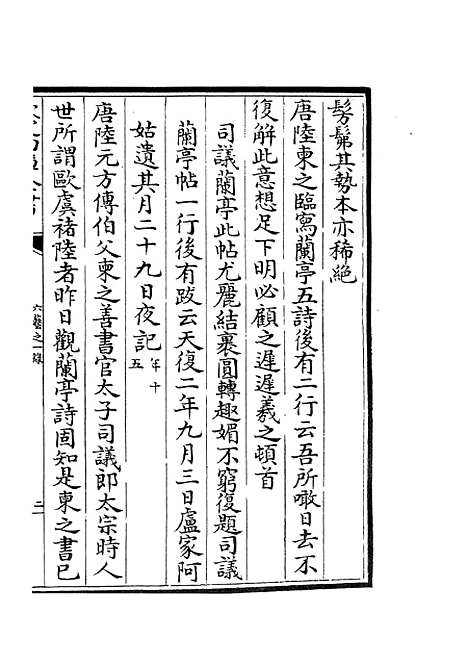 髣髴其勢本亦稀絶
唐陸柬之臨寫蘭亭五詩後有二行云吾所噉日去不
復解此意想足下明必顧之遲遲羲之頓首
司議蘭亭此帖尤麗結裹圓轉趣媚不窮復題司議
蘭亭帖一行後有跋云天復二年九月三日盧家阿
姑遺其月二十九日夜記年十五
唐陸元方傳伯父柬之善書官太子司議郎太宗時人
世所謂歐虞褚陸者昨日觀蘭亭詩固知是柬之書已
六藝之一録